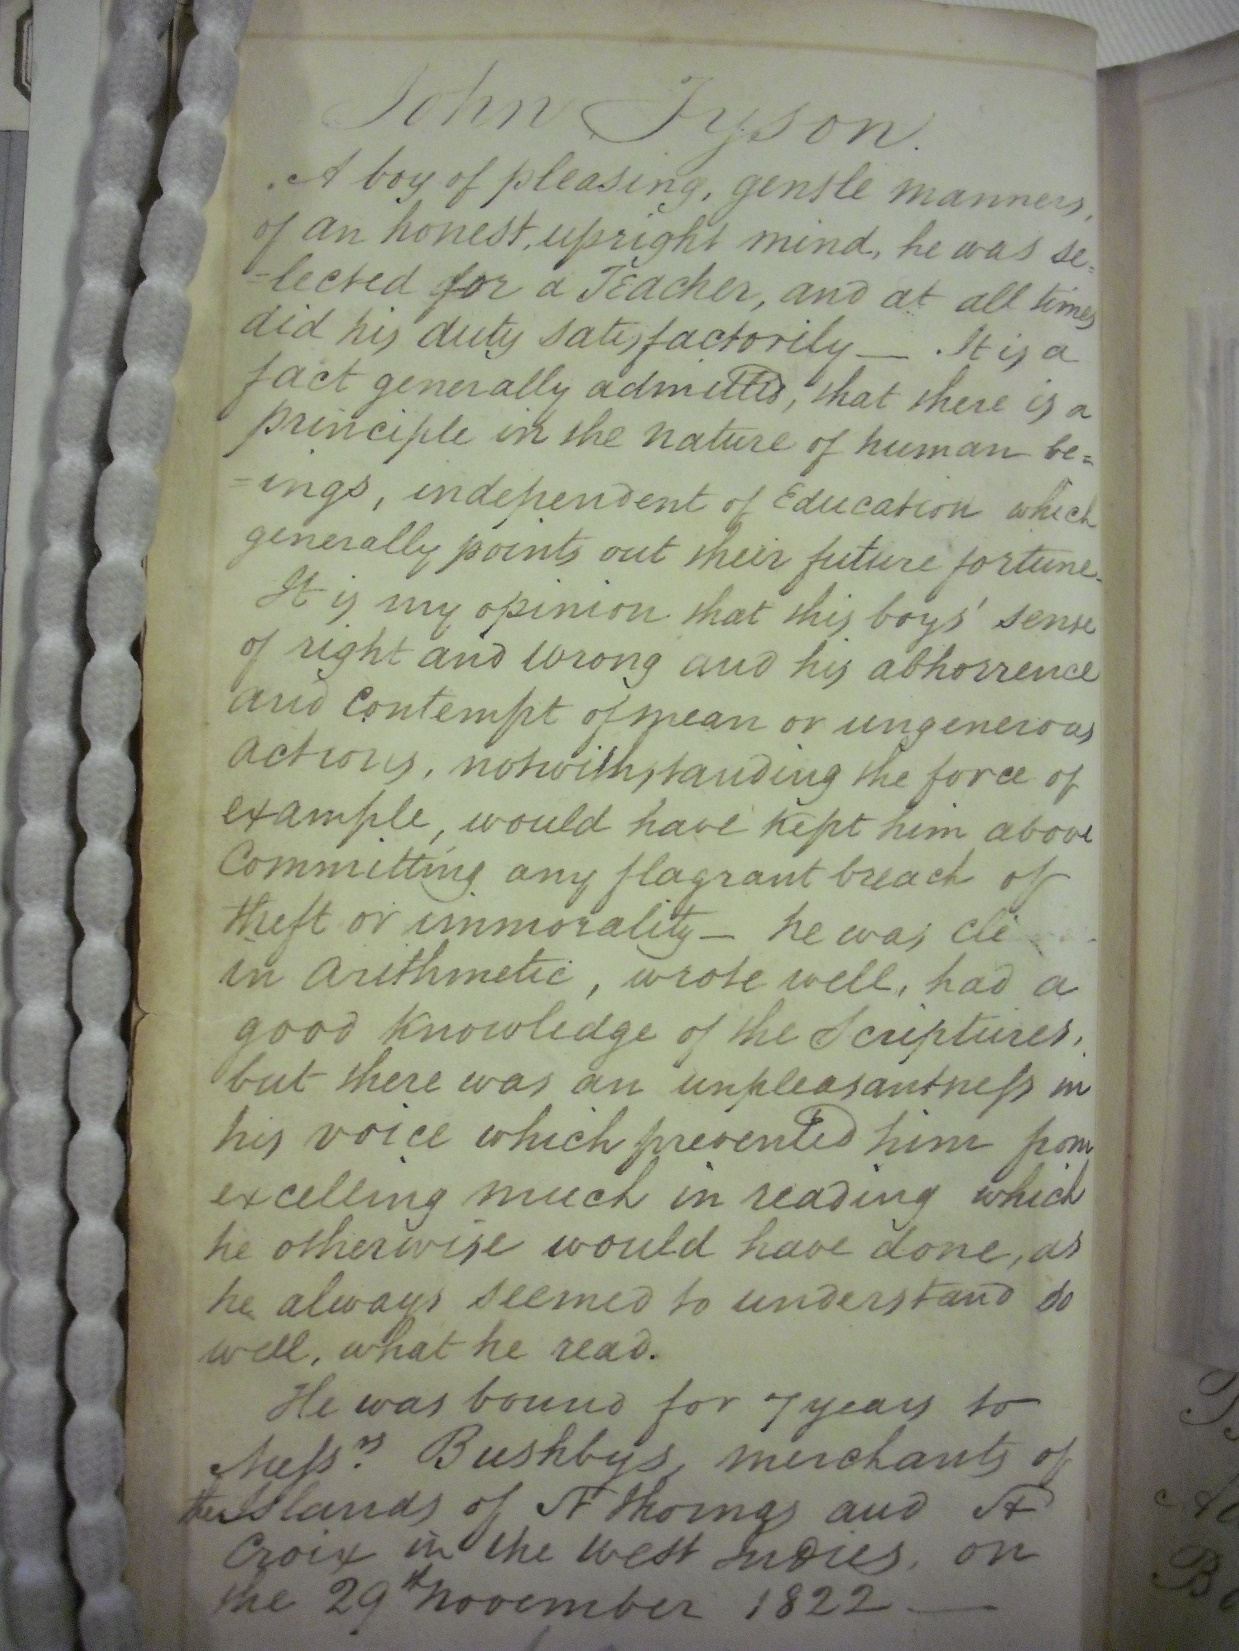 John Tyson.
A boy of pleasing, gentle manners,
of an honest, upright mind, he was se=
-lected for a Teacher, and at all times
did his duty satisfactorily — It is a
fact generally admitted, that there is a
principle in the nature of human be=
=ings, independent of Education which
generally points out their future fortune.
It is my opinion that this boys' sense
of right and wrong and his abhorrence
and contempt of mean or ungenerous
actions, notwithstanding the force of
example, would have kept him above
Committing any flagrant breach of
theft or immorality — he was cle
in arithmetic, wrote well, had a
good knowledge of the Scriptures,
but there was an unpleasantness in
his voice which prevented him from
excelling much in reading which
he otherwise would have done, as
he always seemed to understand so
well, what he read.
He was bound for 7 years to
Messrs. Bushbys, merchants of
the Islands of St Thomas and St
Croix in the West Indies, on
the 29th November 1822 —